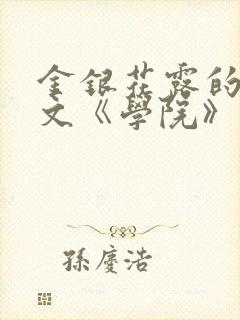 金銀花露的
文《學院》
孫慶浩